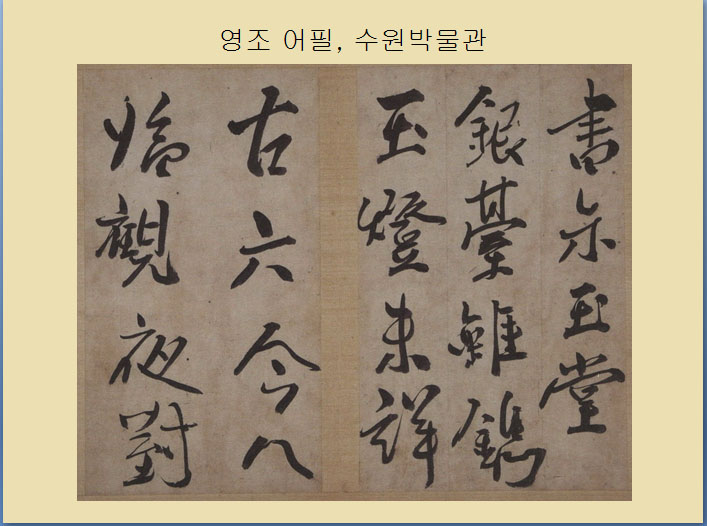 영조 어필, 수원박물관
書示玉堂
銀臺雖鐫
玉燈未詳
古六今八
觀夜對